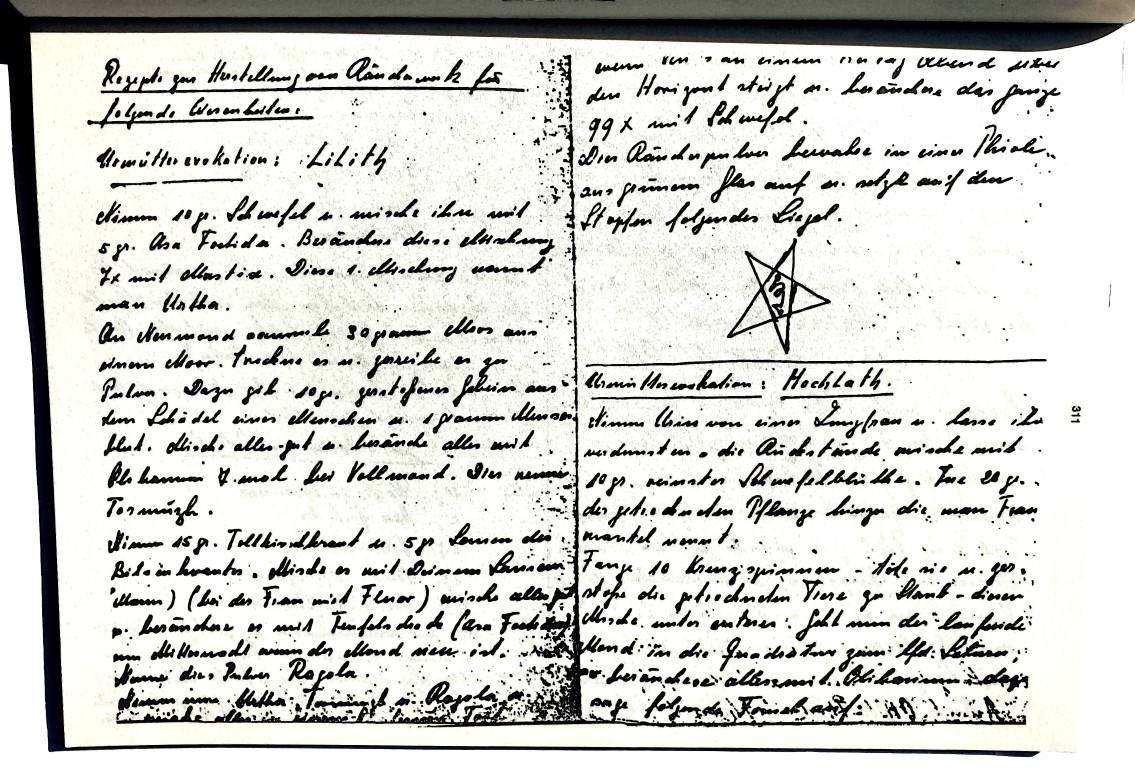 Rezepte zur Herstellung von Räucherwerk für
folgende Wesenheiten:
Urmütterevokation: Lilith
Nimm 10 gr. Schwefel u. mische ihn mit
5 gr. Asa Foetida. Beräuchere diese Mischung
7x mit Mastix. Diese 1. Mischung nennt
man Urtha.
An Neumond sammle 30 gramm Moos aus
einem Moor. Trockne es u. zerreibe es zu
Pulver. Dazu gib 10 gr. gestoßenes Gebein aus
dem Schädel eines Menschen u. 1 gramm Menses
blut. Mische alles gut u. beräuche alles mit
Olibanum 7 mal bei Vollmond. Dies nenne
Nimm 15 gr. Tollkirschkraut u. 5 gr Samen des
Bilsenkrautes. Mische es mit Deinem Samen
Mann) (bei der Frau mit Fluor) mische alles gut
u. beräuchere es mit Teufelsdreck (Asa Foetida)
um Mitternacht wenn der Mond neu ist.
Nenne dies Pulver Ragola.
Nimm nun Urtha, u. Ragola
den Horizont steigt u. beräuchere das ganze
99 x mit Schwefel.
Dies Räucherpulver bewahre in einer Phiole
aus grünem Glas auf u. setze auf den
Stopfen folgendes Siegel.
Urmütterevokation: Hochlath.
Nimm Urin von einer Jungfrau u. lasse ihn
verdunsten, die Rückstände mische mit
10 gr. reinster Schwefelblüthe. Tue 20 gr.
der getrockneten Pflanze hinzu die man Frauen
mantel nennt.
Fange 10 Kreuzspinnen - töte sie u. zer-
stoße die getrockneten Tiere zu Staub - diesen
Mische unter ersteres. Geht nun der laufende
Mond in die Quadratur zum lfd. Saturn,
so beräuchere alles mit Olibanum - dazu
sage folgende Formel auf:
311